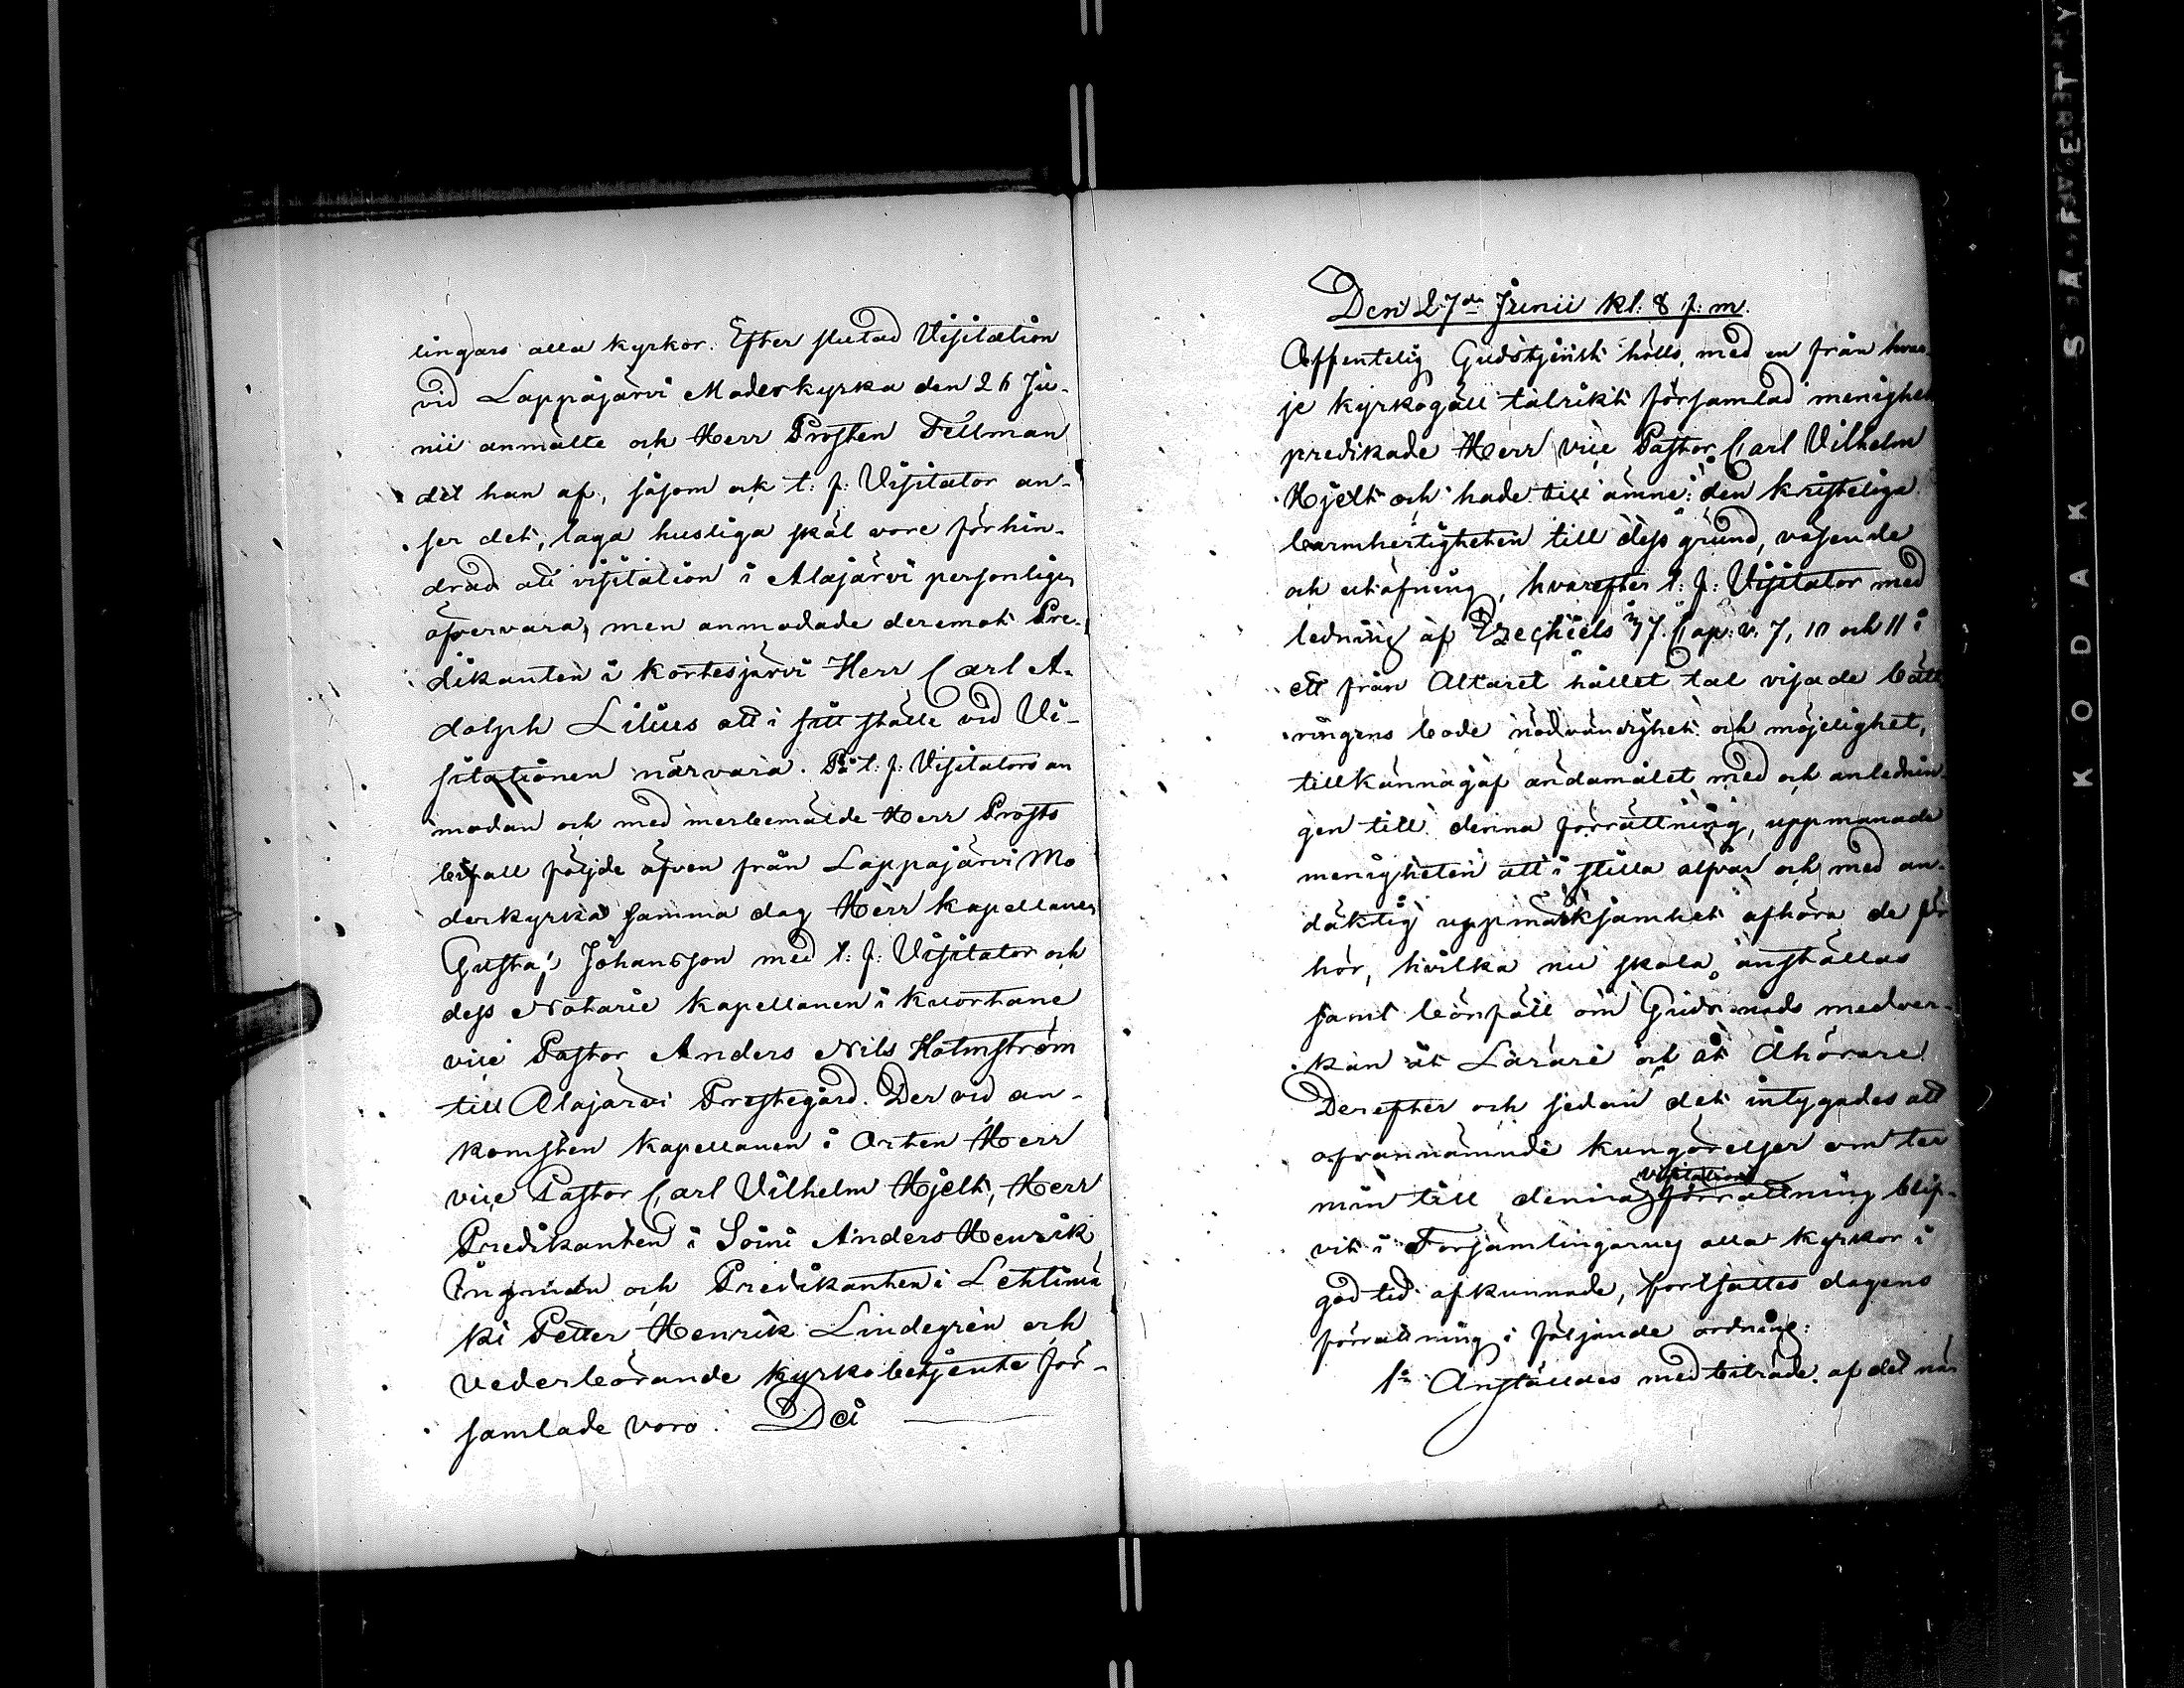 lingars alla kyrkor. Efter slutad Visitation
vid Lappajärvi Moderkyrka den 26 Ju-
nii anmälte och Herr Prosten Fellman
det han af, såsom ock t: f: Visitator an-
ser det, laga husliga skäl vore förhin-
drad att visitation i Alajärvi personligen
öfvervara, men anmodade deremot Pre-
dikanten i Kortesjärvi Herr Carl A-
dolph Lilius att i sitt ställe vid Vi-
sitationen närvara. På t: f: Visitators an
modan och med merbemälde Herr Prosts
bifall följde äfven från Lappajärvi Mo
derkyrka samma dag Herr Kapellanen
Gustaf Johansson med t: f: Visitator och
dess Notarie Kapellanen i Kuortane
vice Pastor Anders Nils Holmström
till Alajärvi Prestegård. Der vid an-
komsten Kapellanen i Orten Herr
vice Pastor Carl Vilhelm Hjelt, Herr
Predikanten i Soini Anders Henrik
Ingman och Predikanten i Lehtimä
ki Petter Henrik Lindegrén och
vederbörande kyrkobetjente för-
samlade voro. Då
Den 27de Junii kl: 8 f: m.
Offentelig Gudstjenst hölls, med en från hvar-
je kyrkogäll talrikt församlad menighet
predikade Herr vice Pastor Carl Vilhelm
Hjelt och hade till ämne: den kristeliga
barmhertigheten till dess grund, väsende
och utöfning, hvarefter t: f: Visitator med
ledning af Ezechiels 37. Cap: v. 7, 10 och 11 i
ett från Altaret hållet tal visade bätt
ringens både nödvändighet och möjelighet,
tillkännagaf ändamålet med och anlednin
gen till denna förrättning, uppmanade
menigheten att i stilla alfvar och med an-
däktig uppmärksamhet afhöra de för
hör, hvilka nu skola anställas
samt bönföll om Guds nåds medver-
kan åt Lärare och åt Åhörare
Derefter och sedan det intygades att
ofvannämnde kungörelser om ter
min till denna visitations förrättning blif-
vit i Församlingarnes alla kyrkor i
god tid afkunnade, fortsattes dagens
förrättning i följande ordning:
1o Anställdes med biträde af det när
S A F E T Y
K O D A K